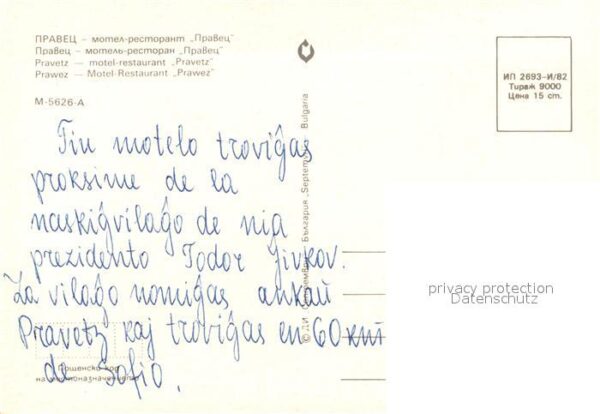 ПРАВЕЦ — мотел-ресторант „Правец“
Правец — мотель-ресторан „Правец“
Pravetz — motel-restaurant “Pravetz”
Prawez — Motel-Restaurant “Prawez”
М-5626-А
ИП 2693-И/82
Тираж 9000
Цена 15 ст.
Tiu motelo troviĝas
proksime de la
naskiĝvilaĝo de nia
prezidento Todor Jivkov.
La vilaĝo nomiĝas ankaŭ
Pravetz kaj troviĝas en 60 km
de Sofio.
Пощенски код
на местоназначението
© ДИ „Септември“ България „Septemvri“ Bulgaria
privacy protection
Datenschutz